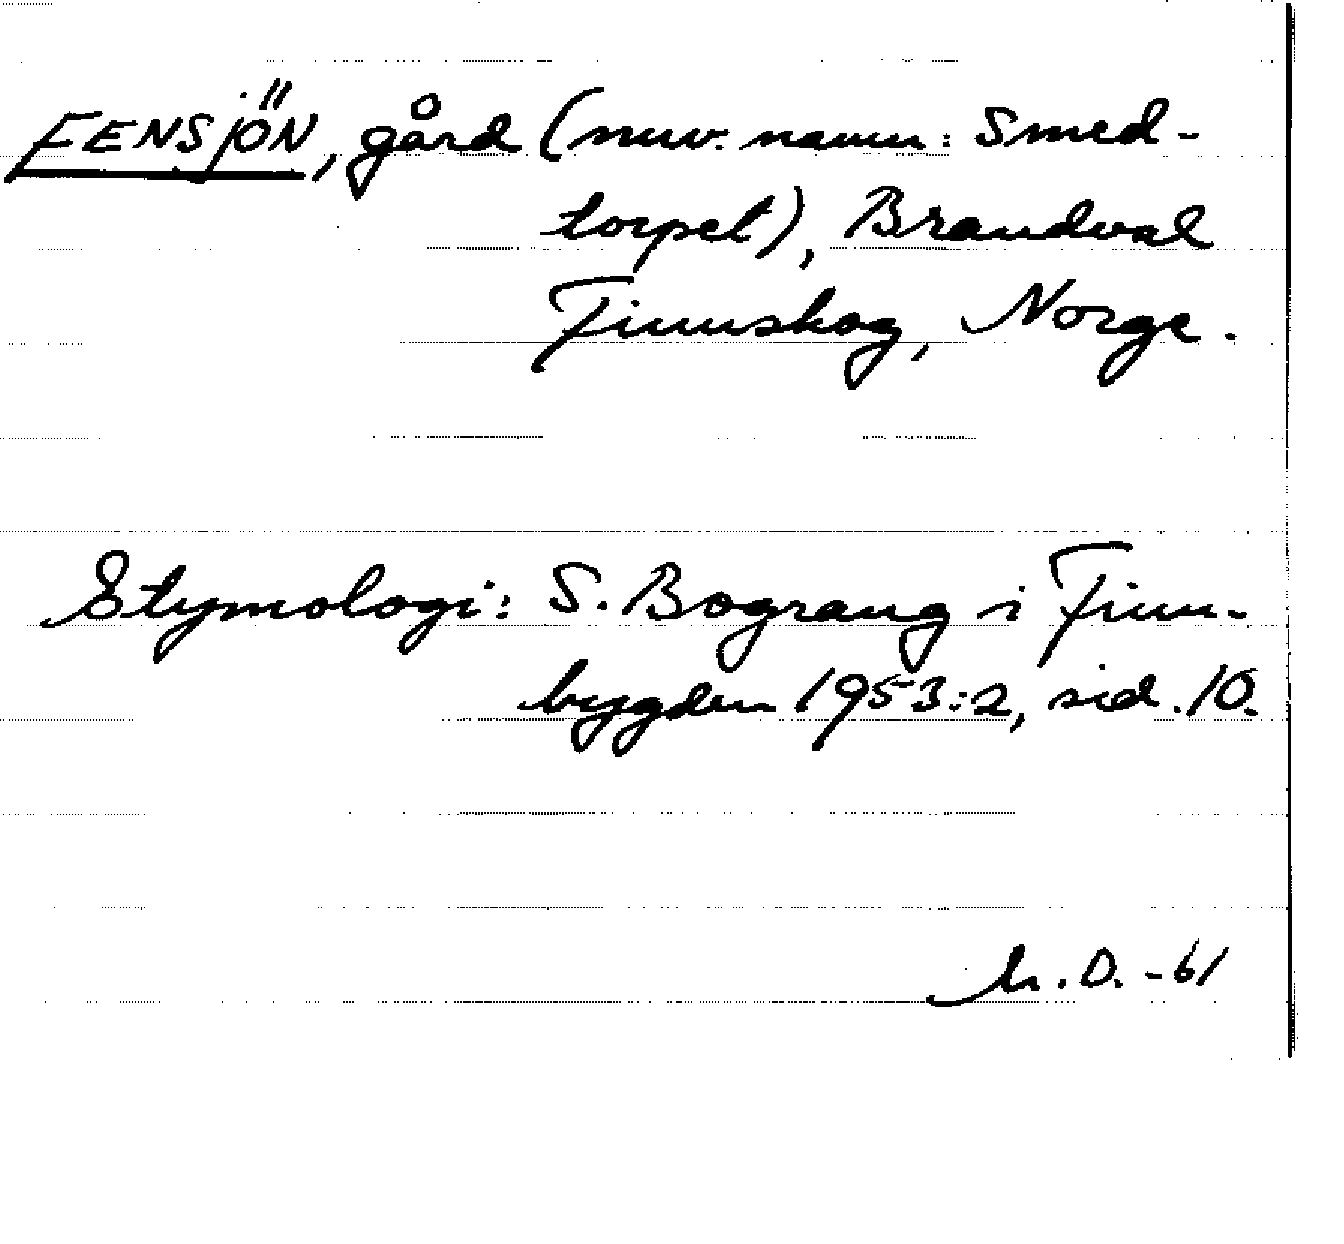 FENSJÖN, gård (nuv. namn: Smed-
torpet), Brandval
Finnskog, Norge.
Etymologi: S. Bograng i Finn-
bygden 1953:2, sid. 10.
D. -61